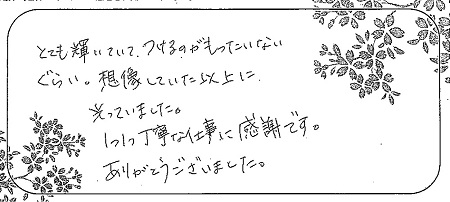 とても輝いていて、つけるのがもったいない
ぐらい。想像していた以上に
光っていました。
1つ1つ丁寧な仕事に感謝です。
ありがとうございました。